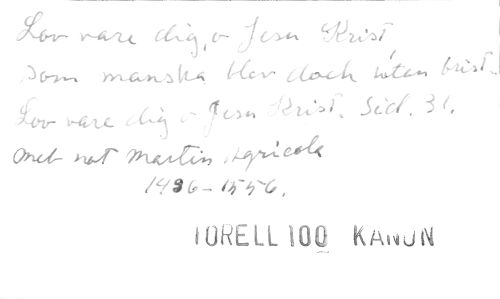 Lov vare dig, o Jesu Krist,
som manska blev doch utan brist.
Lov vare dig o Jesu Krist. Sid. 31.
met not Martin Agricola
1496-1556.
TORELL 100 KANON